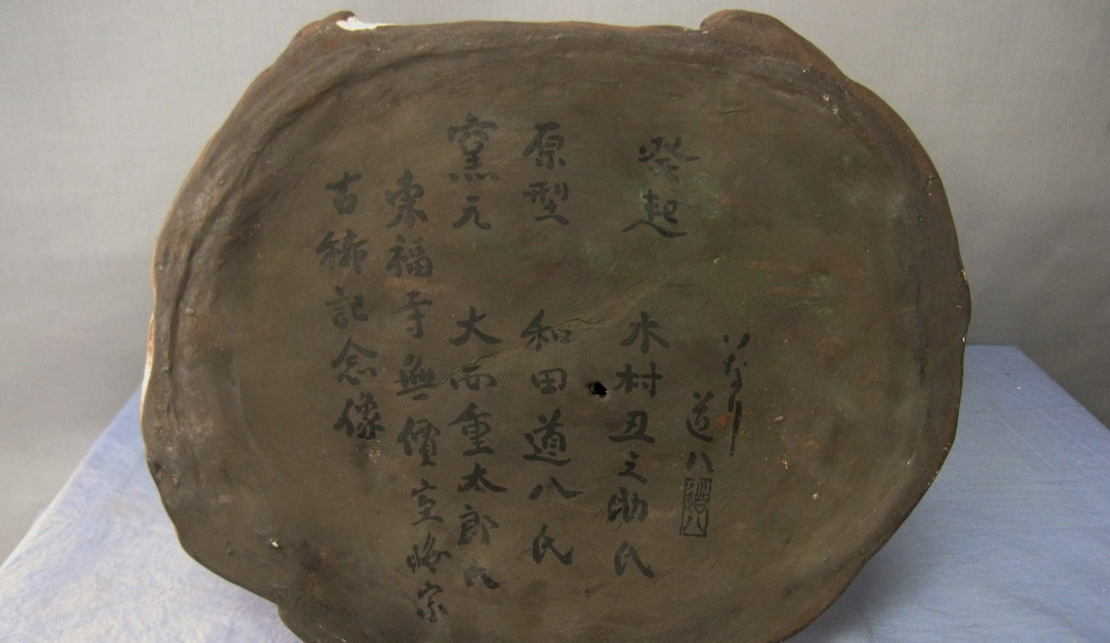 いなり
道八 道八
発起 木村丑之助氏
原型 和田道八氏
窯元 大西重太郎氏
東福寺無價室宗
古稀記念像